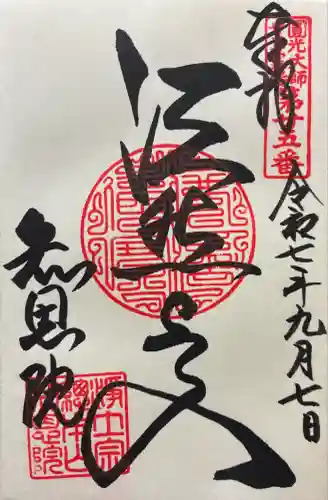 奉拝
圓光大師第廿五番
令和七年九月七日
法然上人
知恩院
浄土宗
總本山
知恩院